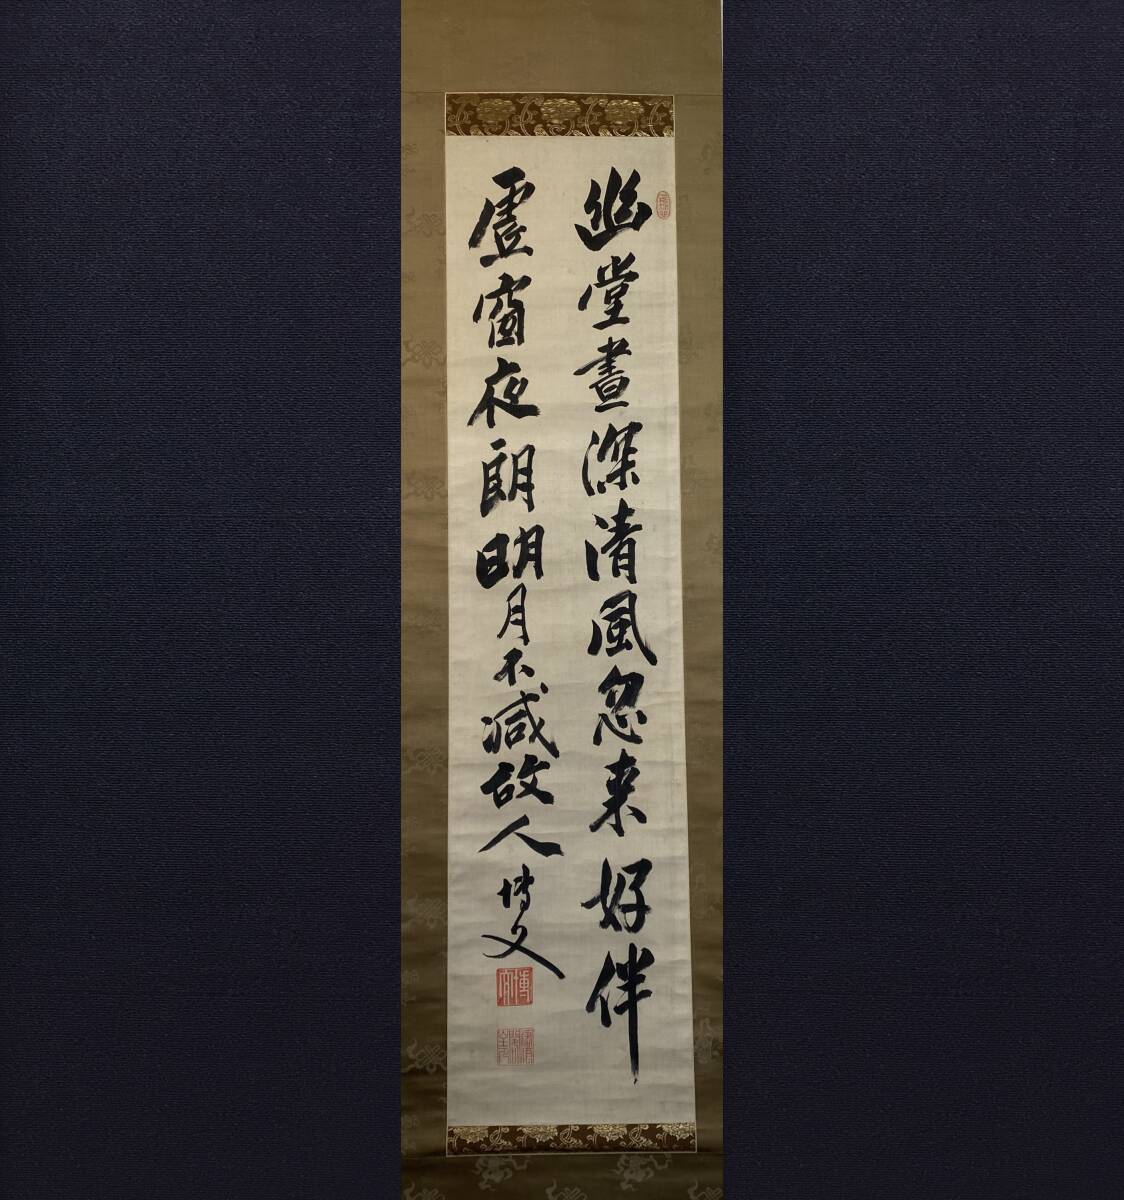 幽堂晝深清風忽来好伴
虚窗夜朗明月不減故人
博文
博文